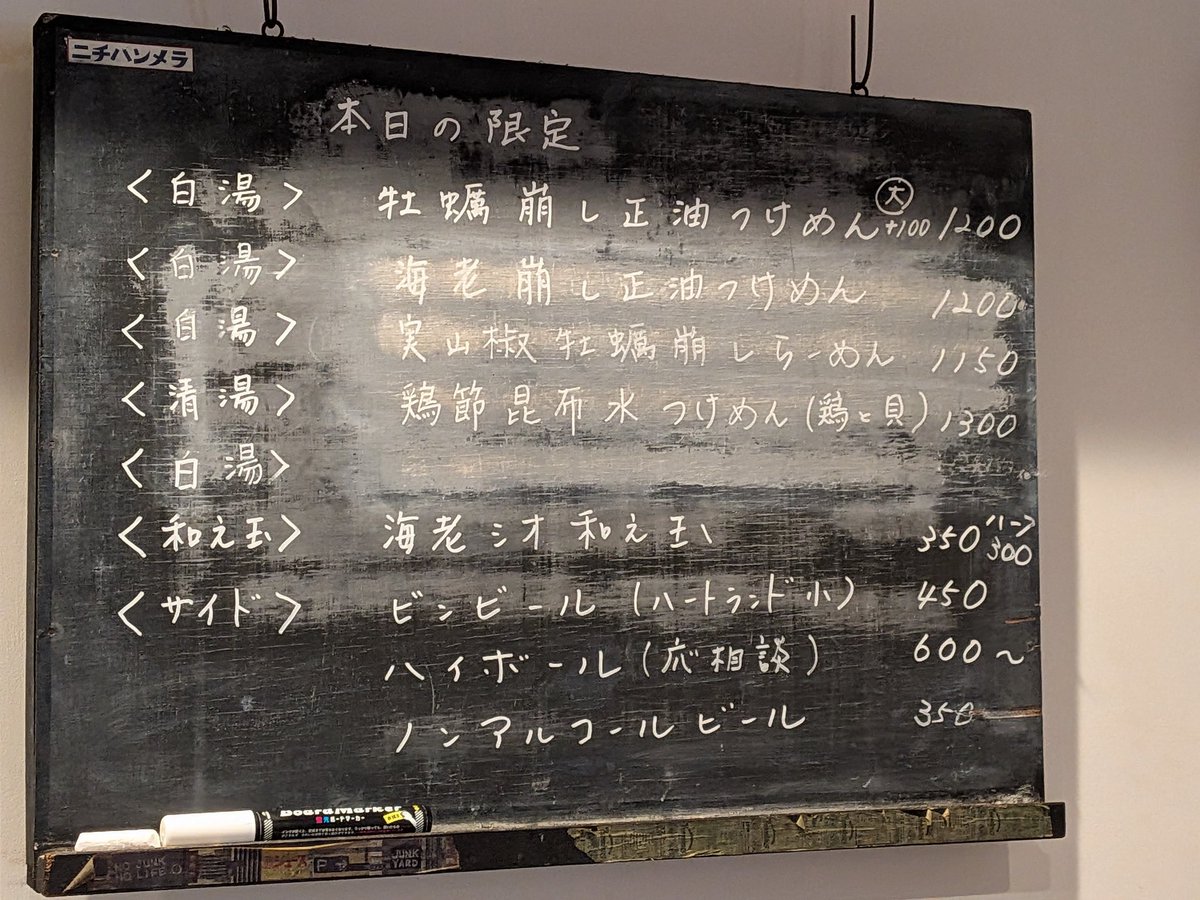 ニチハンメラ
本日の限定
<白湯> 牡蠣崩し正油つけめん 大 +100 1200
<白湯> 海老崩し正油つけめん 1200
<白湯> 実山椒牡蠣崩しらーめん 1150
<清湯> 鶏節昆布水つけめん(鶏と貝) 1300
<白湯>
<和え玉> 海老シオ和え玉 350 ハーフ 300
<サイド> ビンビール (ハートランド小) 450
ハイボール (応相談) 600~
ノンアルコールビール 350
BoardMarker
NO JUNK NO LIFE JUNK YARD